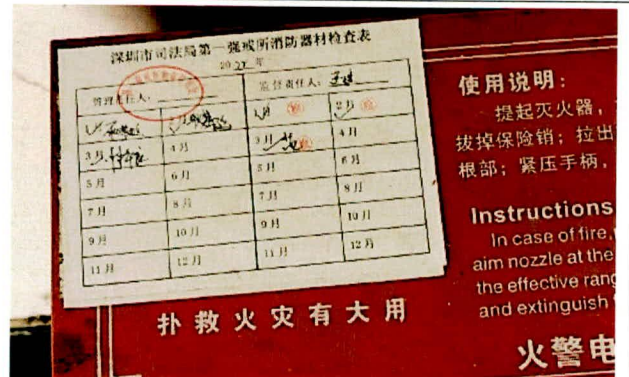 深圳市司法局第一强戒所消防器材检查表
20 年
管理责任人: 监督责任人:
1月 2月 1月 2月
3月 4月 3月 4月
5月 6月 5月 6月
7月 8月 7月 8月
9月 10月 9月 10月
11月 12月 11月 12月
扑救火灾有大用
使用说明:
提起灭火器,
拔掉保险销; 拉出
根部; 紧压手柄,
Instructions
In case of fire,
aim nozzle at the
the effective rang
and extinguish
火警电